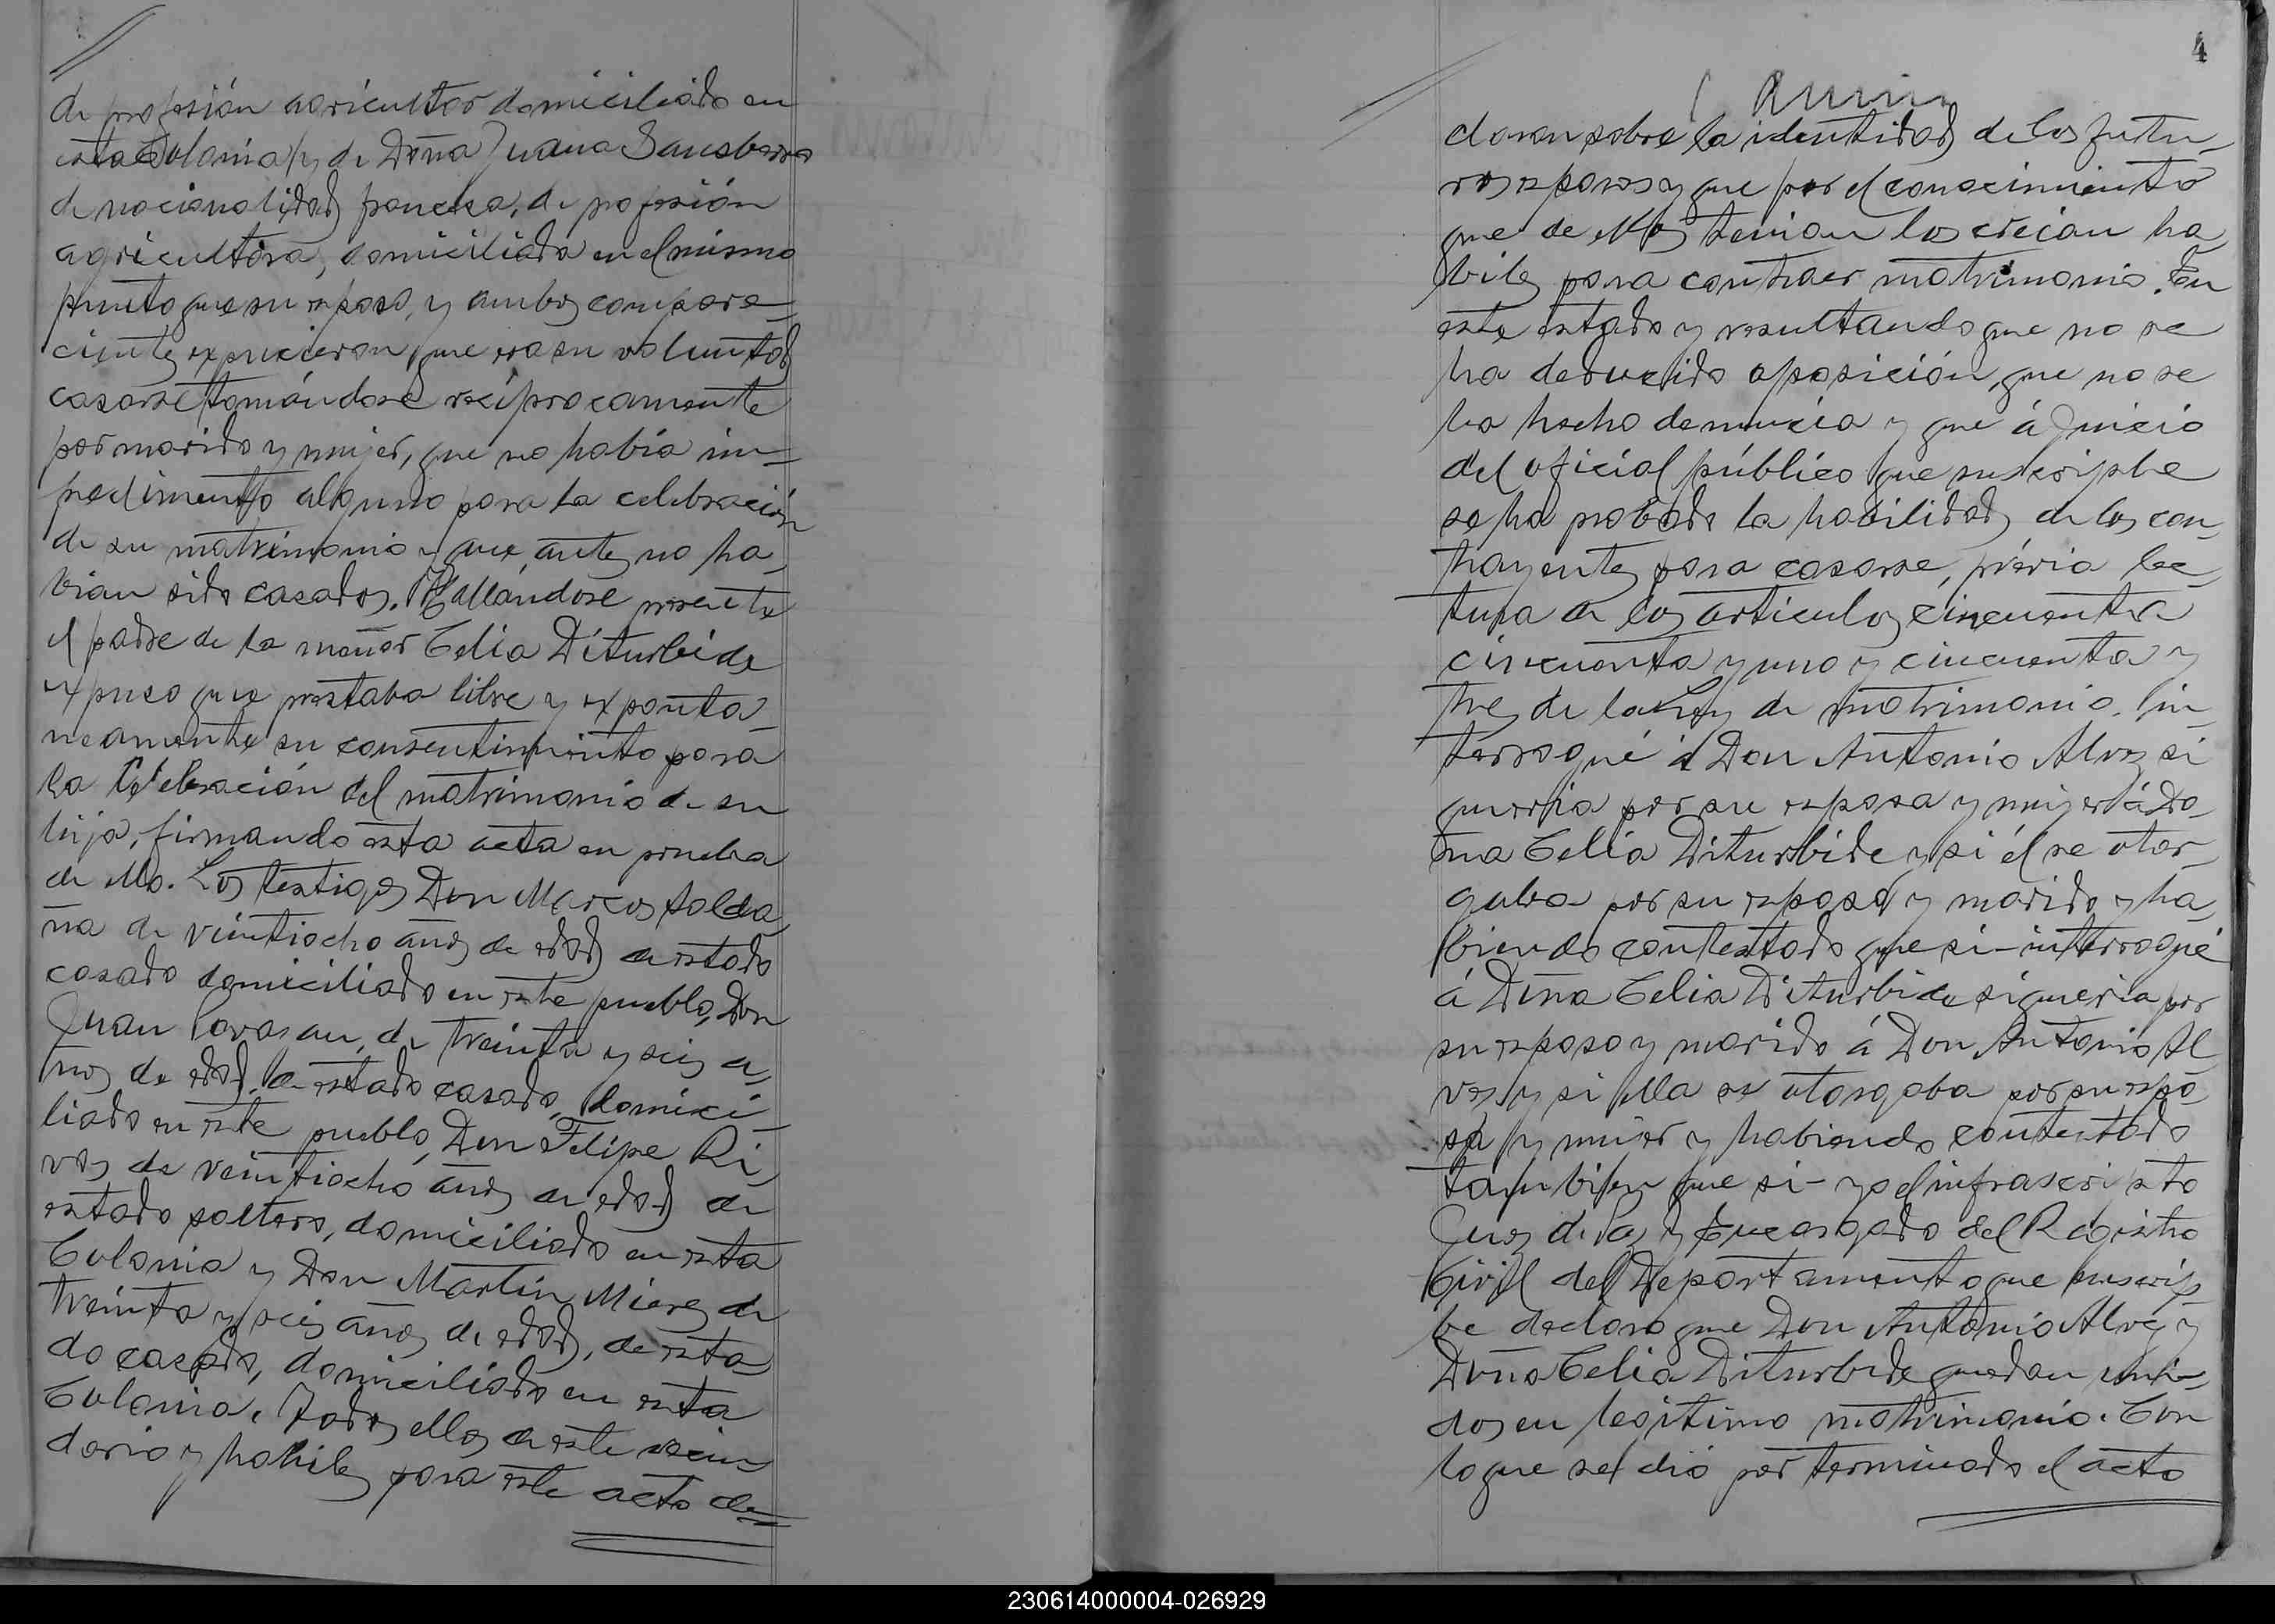 de profesión agricultor domiciliado en
esta Colonia y de Doña Juana Sansberro
de nacionalidad francesa, de profesión
agricultora, domiciliada en el mismo
punto que su esposo, y ambos compare=
cientes expusieron que era su voluntad
casarse tomándose recíprocamente
por marido y mujer, que no había im=
pedimento alguno para la celebración
de su matrimonio y que antes no ha-
bian sido casados. Hallándose presente
el padre de la menor Celia Diturbide
expuso que prestaba libre y exponta-
neamente su consentimiento para
la celebración del matrimonio de su
hija, firmando esta acta en prueba
de ello. Los testigos Don Marcos Salda-
ña de veintiocho años de edad de estado
casado domiciliado en este pueblo, Don
Juan de treinta y seis a-
ños de edad, de estado casado, domici-
liado en este pueblo, Don Felipe Ri-
vas de veintiocho años de edad de
estado soltero, domiciliado en esta
Colonia y Don Martín Mieres de
treinta y seis años de edad, de esta
do casado, domiciliado en esta
Colonia. Todos ellos de este vecin-
dario y habiles para este acto de=
4
claran sobre la identidad de los futu-
ros esposos y que por el conocimiento
que de ellos tenian los creian ha-
biles para contraer matrimonio. En
este estado y resultando que no se
ha deducido oposición, que no se
ha hecho denuncia y que á juicio
del oficial público que suscribe
se ha probado la habilidad de los con-
trayentes para casarse, prévia lec-
tura de los articulos cincuenta
cincuenta y uno y cincuenta y
tres de la Ley de matrimonio. in-
terrogué á Don Antonio Alvez si
queria por su esposa y mujer á Do-
ña Celia Diturbide y si él se otor-
gaba por su esposo y marido y ha-
biendo contestado que si- interrogué
á Doña Celia Diturbide si queria por
su esposo y marido á Don Antonio Al
vez y si ella se otorgaba por su espo-
sa y mujer y habiendo contestado
tambien que si- yo el infrascripto
Juez de Paz y Encargado del Registro
Civil del Departamento que suscri-
be declaro que Don Antonio Alvez y
Doña Celia Diturbide quedan uni-
dos en legítimo matrimonio. Con
lo que se dió por terminado el acto
230614000004-026929